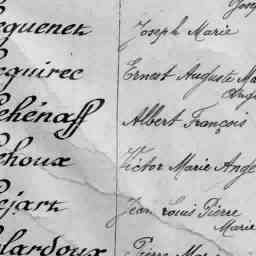 equenen Joseph Marie
equirec Ernest Auguste Ma
Lehénaff Albert François
ehoux Victor Marie Ange
ejart Jean Louis Pierre
Marie
elardoux Pierre Mar